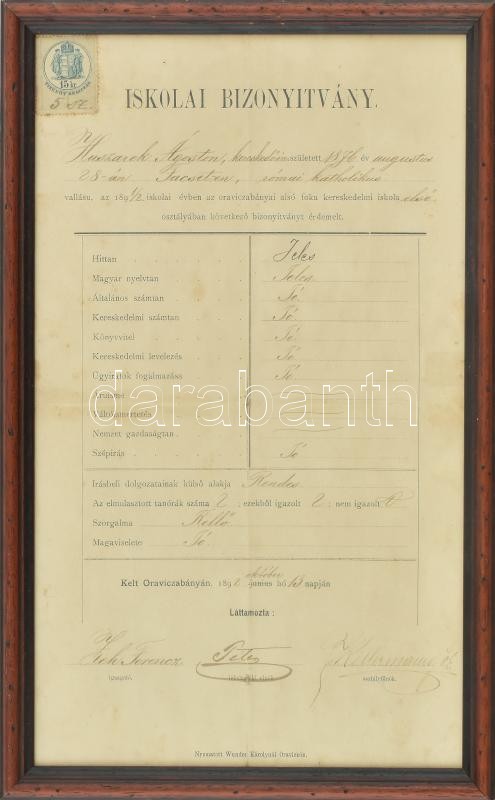 15 kr.
5 sz.
ISKOLAI BIZONYITVÁNY.
Huszarek Ágoston, született 1876 év augustus
28-án római katholikus
vallásu, az 1891/2 iskolai évben az oraviczabányai alsó foku kereskedelmi iskola első
osztályában következő bizonyitványt érdemelt.
Hittan Jeles
Magyar nyelvtan Jeles
Általános számtan Jó
Kereskedelmi számtan Jó
Könyvvitel Jó
Kereskedelmi levelezés Jó
Ügyiratok fogalmazása Jó
Áruisme
Váltóismertetés
Nemzet gazdaságtan
Szépirás Jó
darabanth
Irásbeli dolgozatainak külső alakja Rendes
Az elmulasztott tanórák száma 2; ezekből igazolt 2; nem igazolt 0
Szorgalma Kellő
Magaviselete Jó
október
Kelt Oraviczabányán, 1892 junius hó napján
Láttamozta:
Ferencz
igazgató.
osztályfőnök.
Nyomatott Wunder Károlynál Oraviczán.